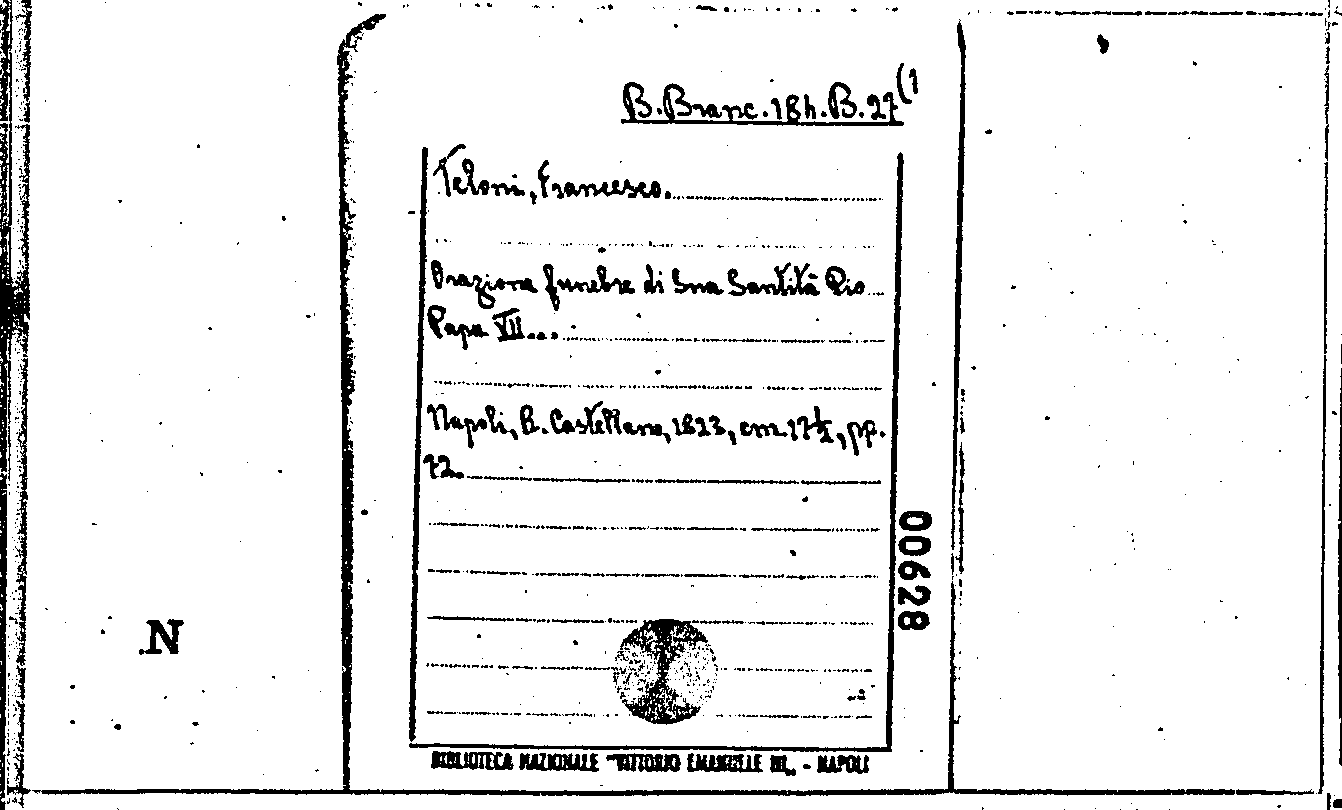 B. Branc. 18h. B. 27(1
Teloni, Francesco.
Orazione funebre di Sua Santità Pio
Papa VII...
Napoli, B. Castellano, 1823, cm. 17½, pp.
72.
00628
N
BIBLIOTECA NAZIONALE "VITTORIO EMANUELE III„ - NAPOLI